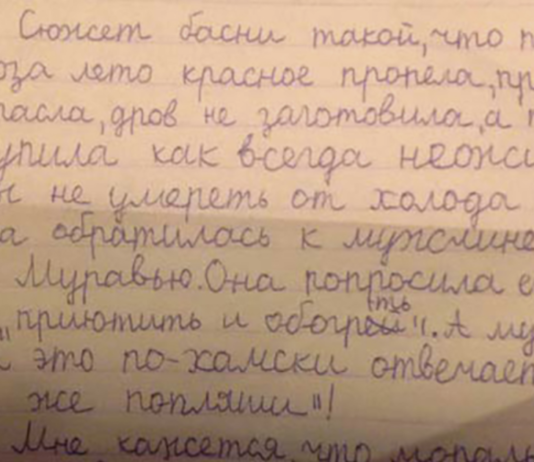 Сюжет басни такой, что п
оза лето красное пропела, пр
пасла, дров не заготовила, а
упила как всегда неожи
ы не умереть от холода
а обратилась к мужчине
Муравью. Она попросила е
„приютить и обогреть". А му
и это по-хамски отвечает
же попляши"!
Мне кажется, что мораль